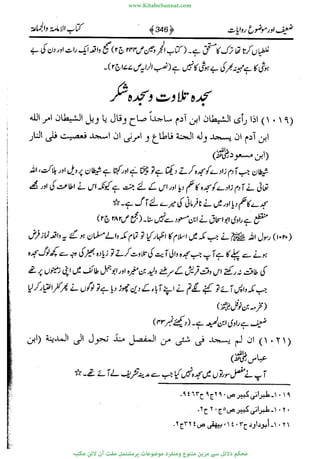 www.KitaboSunnat.com
ضعیف اور موضوع روایات ﴿346﴾ کتاب الامامۃ والجماعۃ
غلطیاں کرتا تھا ترک کا مستحق ہے۔ (کتاب المجروحین ص۲۳۳ ج۲) صحیح واقعہ ایک رات اور دن کی بے
ہوشی کا ہے مہینہ بھر کی بے ہوشی کا نہیں ہے (نصب الرایہ ص۱۷۷ ج۲)۔
سجدہ تلاوت و سجدہ شکر
(۱۰۱۹) اذا رأى الشيطان ابن آدم ساجداً صاح وقال يا ويل الشيطان امر الله
ابن آدم ان يسجد وله الجنة فاطاع و امرنى ان اسجد فعصيت فلى النار
(ابن مسعود)
شیطان جب آدم زادے کو سجدہ کرتے دیکھتا ہے تو چیختا ہے اور کہتا ہے شیطان پر ویل اور ہلاکت، اللہ
تعالی نے آدم زادے کو سجدہ کا حکم دیا اور اس کے لئے جنت ہے کیونکہ اس نے اطاعت کی اور مجھے
سجدے کا حکم دیا اور میں نے نافرمانی کی میرے لئے آگ ہے۔☆
منقطع ہے راوی ابو اسحاق نے ابن مسعود سے نہیں سنا۔
(۱۰۲۰) رسول اللہ ﷺ نے جب مکہ میں اسلام کا اظہار کیا تو تمام مکہ والے مسلمان ہو گئے یہ واقعہ نماز فرض
ہونے سے پہلے کا ہے آپ جب سجدہ والی آیت کی تلاوت کرتے تو
کی طاقت نہ رکھتے اس وقت قریش کے سرغنے ولید بن مغیرہ اور ابو جہل طائف میں اپنی زمینوں پر تھے
جب مکہ واپس آئے تو کہنے لگے تم نے اپنے آباء کے دین چھوڑ دیا ہے تو لوگوں نے پھر کفر اختیار کر لیا
(مخرمہ بن نوفل)
ضعیف ہے راوی ابن لھیعہ ہے۔ (دیکھئے نمبر ۳۳)
(۱۰۲۱) ان لم يسجد فى شئى من المفصل منذ تحول الى المدينة (ابن
عباس)
آپ نے مفصل سورتوں میں سجدہ نہیں کیا جب سے مدینہ تشریف لے آئے تھے۔☆
۱۰۱۹۔ طبرانی کبیر ص۲۹۰ ج۹ ح۹۴۶۳۔
۱۰۲۰۔ طبرانی کبیر ص۵ ج۲۰ ح۲۔
۱۰۲۱۔ ابوداود ح۱۴۰۳، بیہقی
محکم دلائل سے مزین متنوع ومنفرد موضوعات پر مشتمل مفت آن لائن مکتبہ